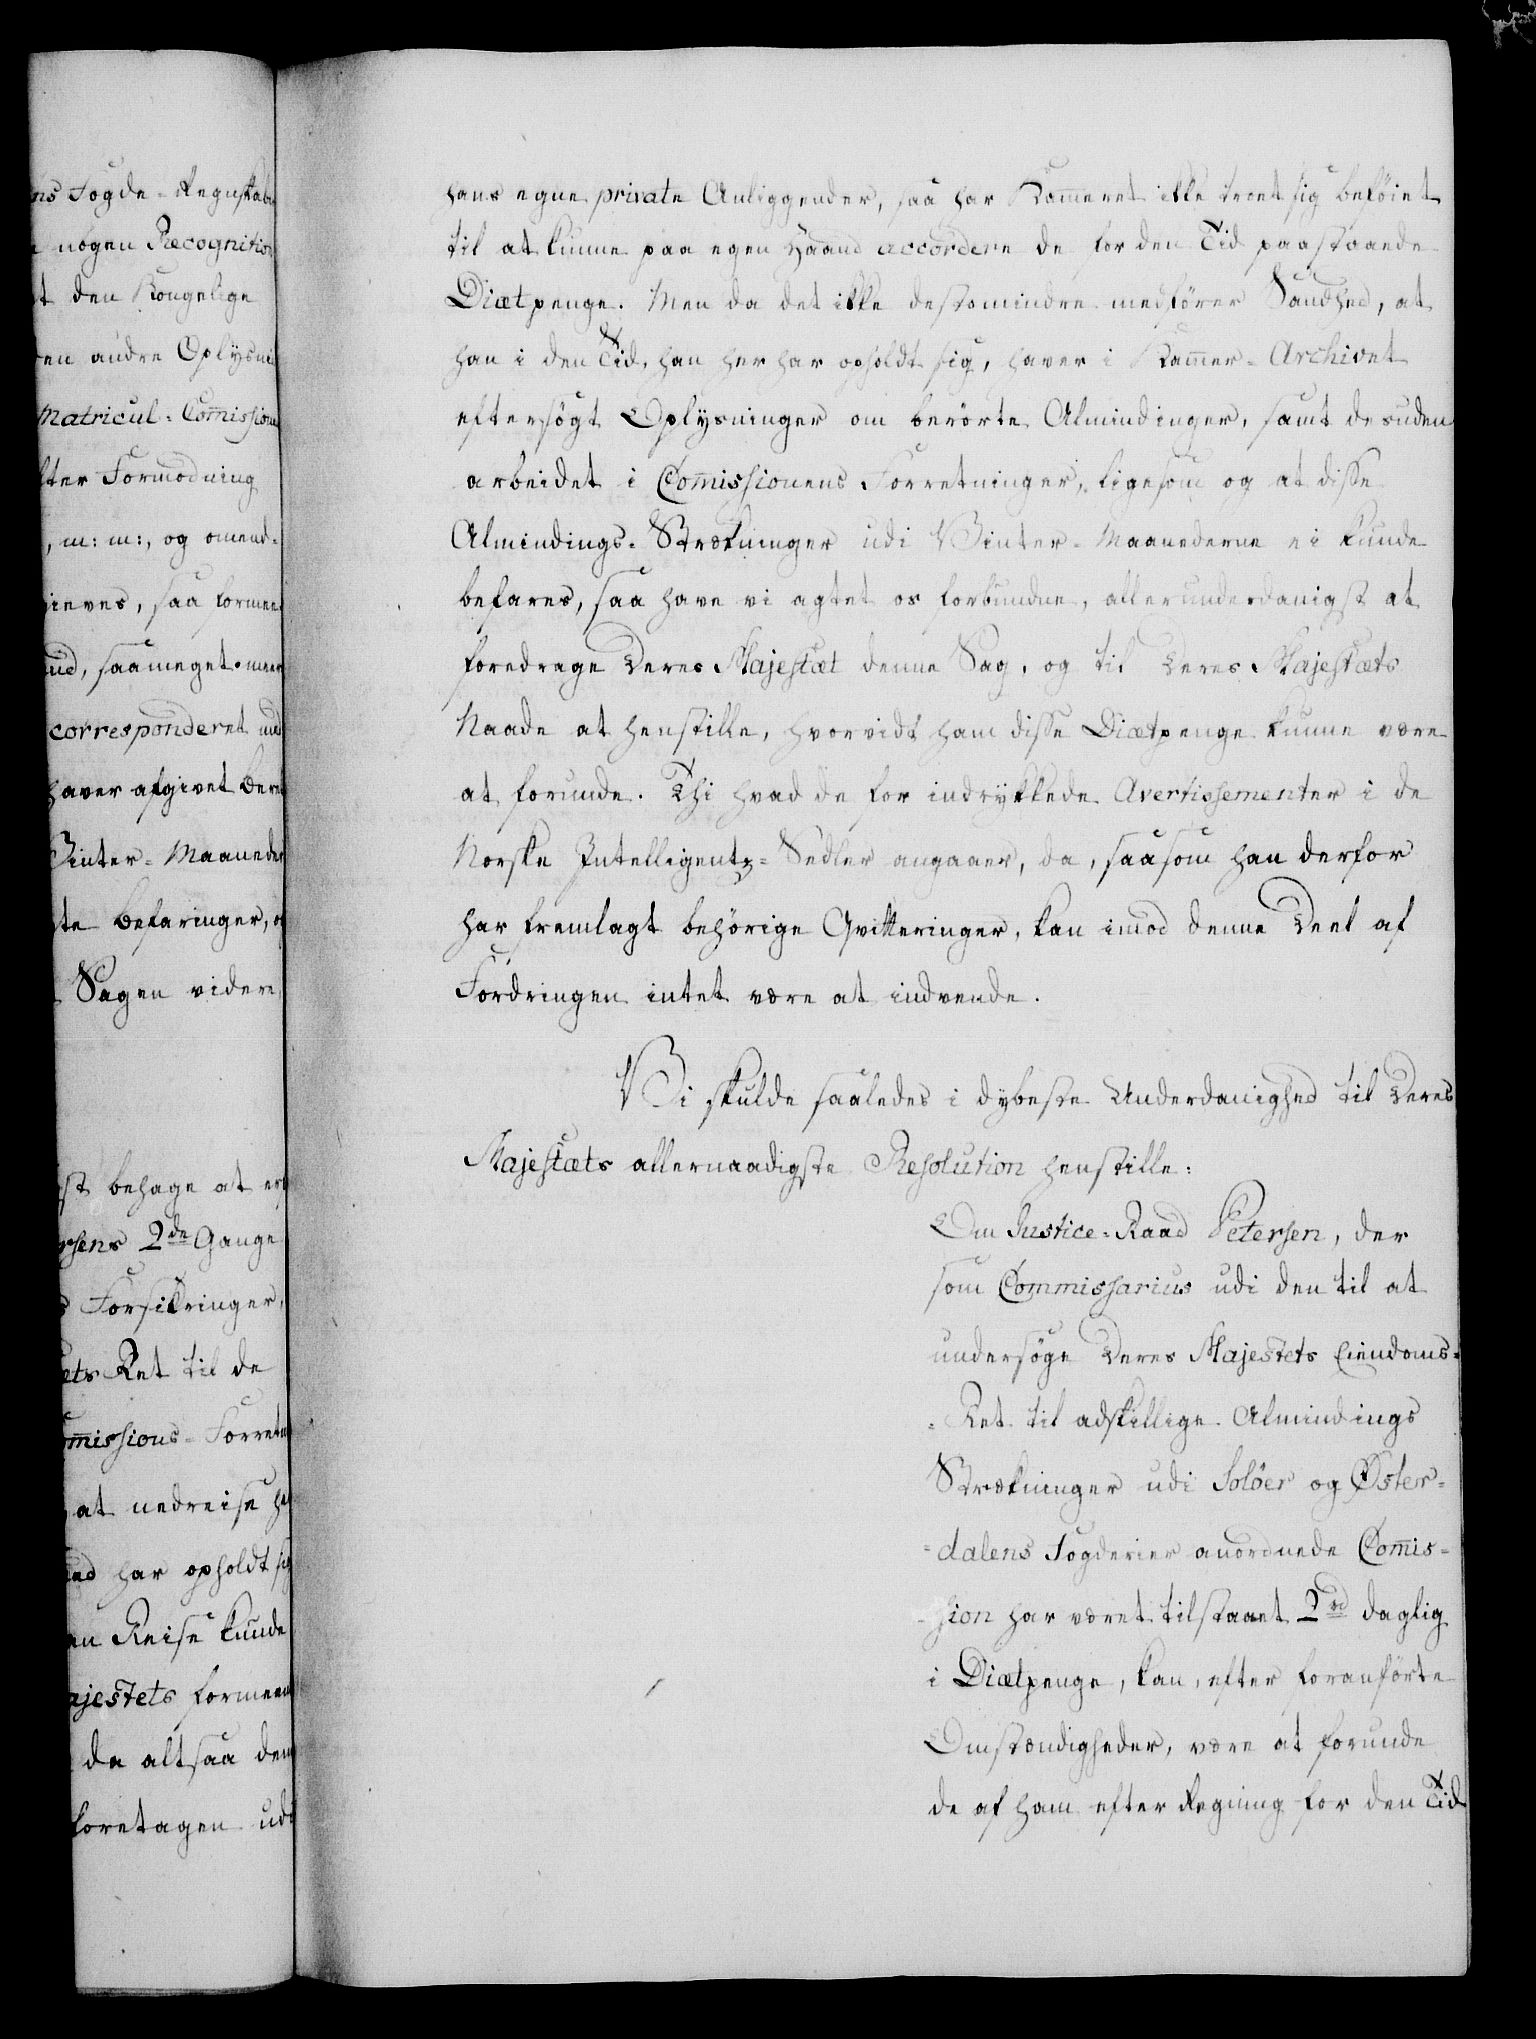 ns Fogde-Regnskabe
nogen Recognition
t den Kongelige
en andre Oplysni
Matricul-Com̄ission
fter Formodning
, m: m:, og omend-
gieves, saa formee
ud, saameget meer
corresponderet med
haver afgivet Ber
Vinter-Maaneder
te Befaringer, o
Sagen videre
st behage at er
rsens 2de Gange
s Forsikringer,
ets Ret til de
om̄issions-Forretn
at nedreise he
ed har opholdt sig
en Reise kunde
ajestets formeen
da altsaa den
foretagen udi
hans egne private Anliggender, saa har Kam̄eret ikke troet sig beföiet
til at kunne paa egen Haand accordere de for den Tid paastaaende
Diætpenge. Men da det ikke destomindre medförer Sandhed, at
han i den Tid, han her har opholdt sig, haver i Kam̄er-Archivet
eftersögt Oplysninger om berörte Almindinger, samt desuden
arbeidet i Com̄issionens Forretninger, ligesom og at disse
Almindings-Strækninger udi Vinter-Maanederne ei kunde
befares, saa have vi agtet os forbundne, allerunderdanigst at
foredrage Deres Majestæt denne Sag, og til Deres Majestæts
Naade at henstille, hvorvidt ham disse Diætpenge kunne være
at forunde. Thi hvad de for indrykkede Avertissementer i de
Norske Intelligentz-Sedler angaaer, da, saasom han derfor
har fremlagt behörige Qvitteringer, kan imod denne Deel af
Fordringen intet være at indvende.
Vi skulde saaledes i dybeste Underdanighed til Deres
Majestæts allernaadigste Resolution henstille:
Om Justice-Raad Petersen, der
som Commissarius udi den til at
undersöge Deres Majestets Eiendoms-
-Ret til adskillige Almindings
Strækninger udi Solöer og Öster-
-dalens Fogderier anordnede Com̄is-
sion har været tilstaaet 2rd daglig
i Diætpenge, kan, efter foranförte
Omstændigheder, være at forunde
de af ham efter Regning for den Tid